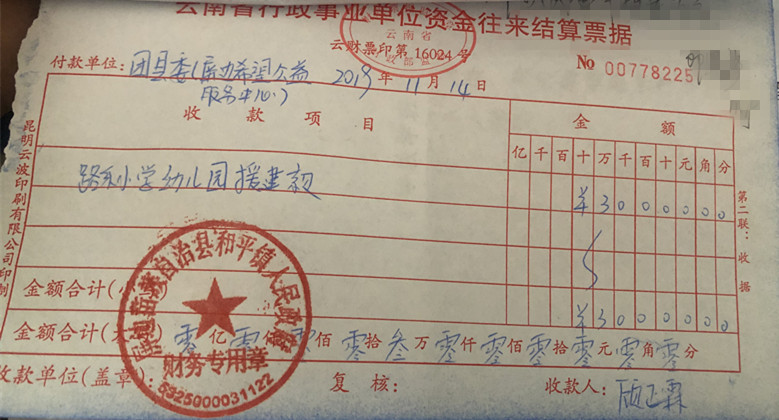 云南省行政事业单位资金往来结算票据
云南省
云财票印第 16024 号
财政部监制
No 00778225
付款单位: 团县委(展助希望公益 2019年 11月 14日
服务中心)
收款项目 金额
亿千百十万千百十元角分
小学幼儿园援建款 ¥3000000
金额合计(小写) ¥3000000
金额合计(大写) 零亿零仟零佰零拾叁万零仟零佰零拾零元零角零分
收款单位(盖章):
复核:
收款人:
自治县和平镇人民政府
财务专用章
5325000031122
第二联:收据
昆明云波印刷有限公司印制